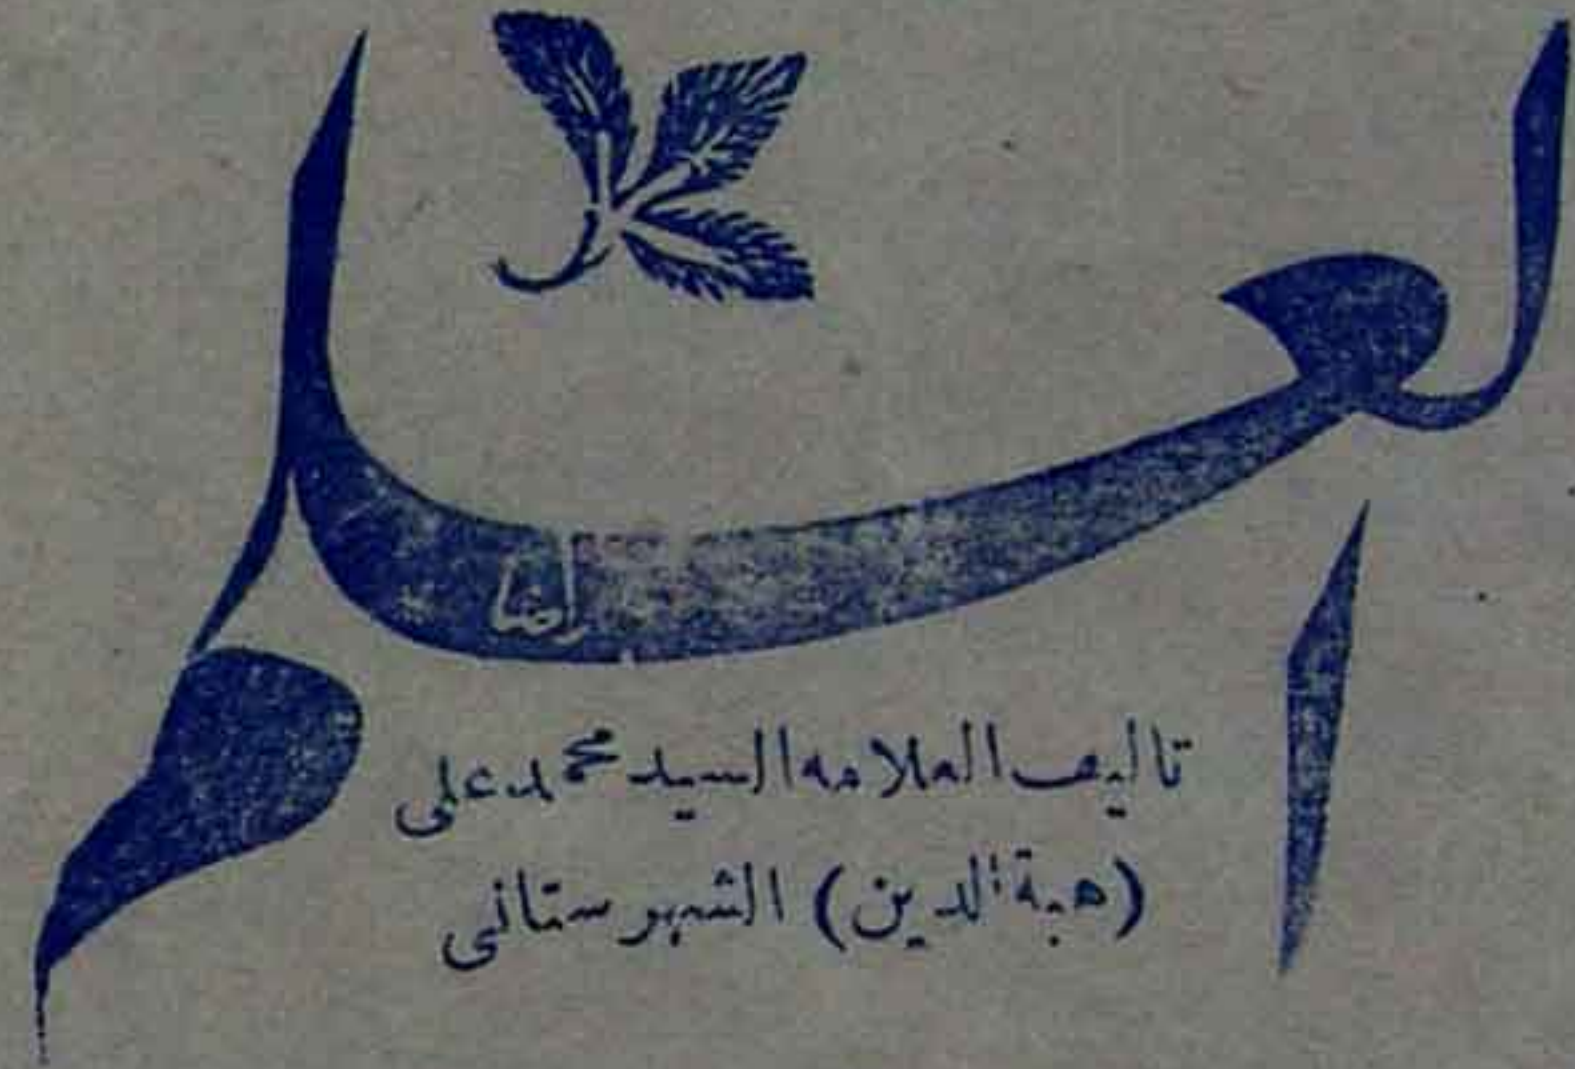 العلم
رضا
تالیف العلامه السید محمد علی
(هبة الدین) الشهرستانی